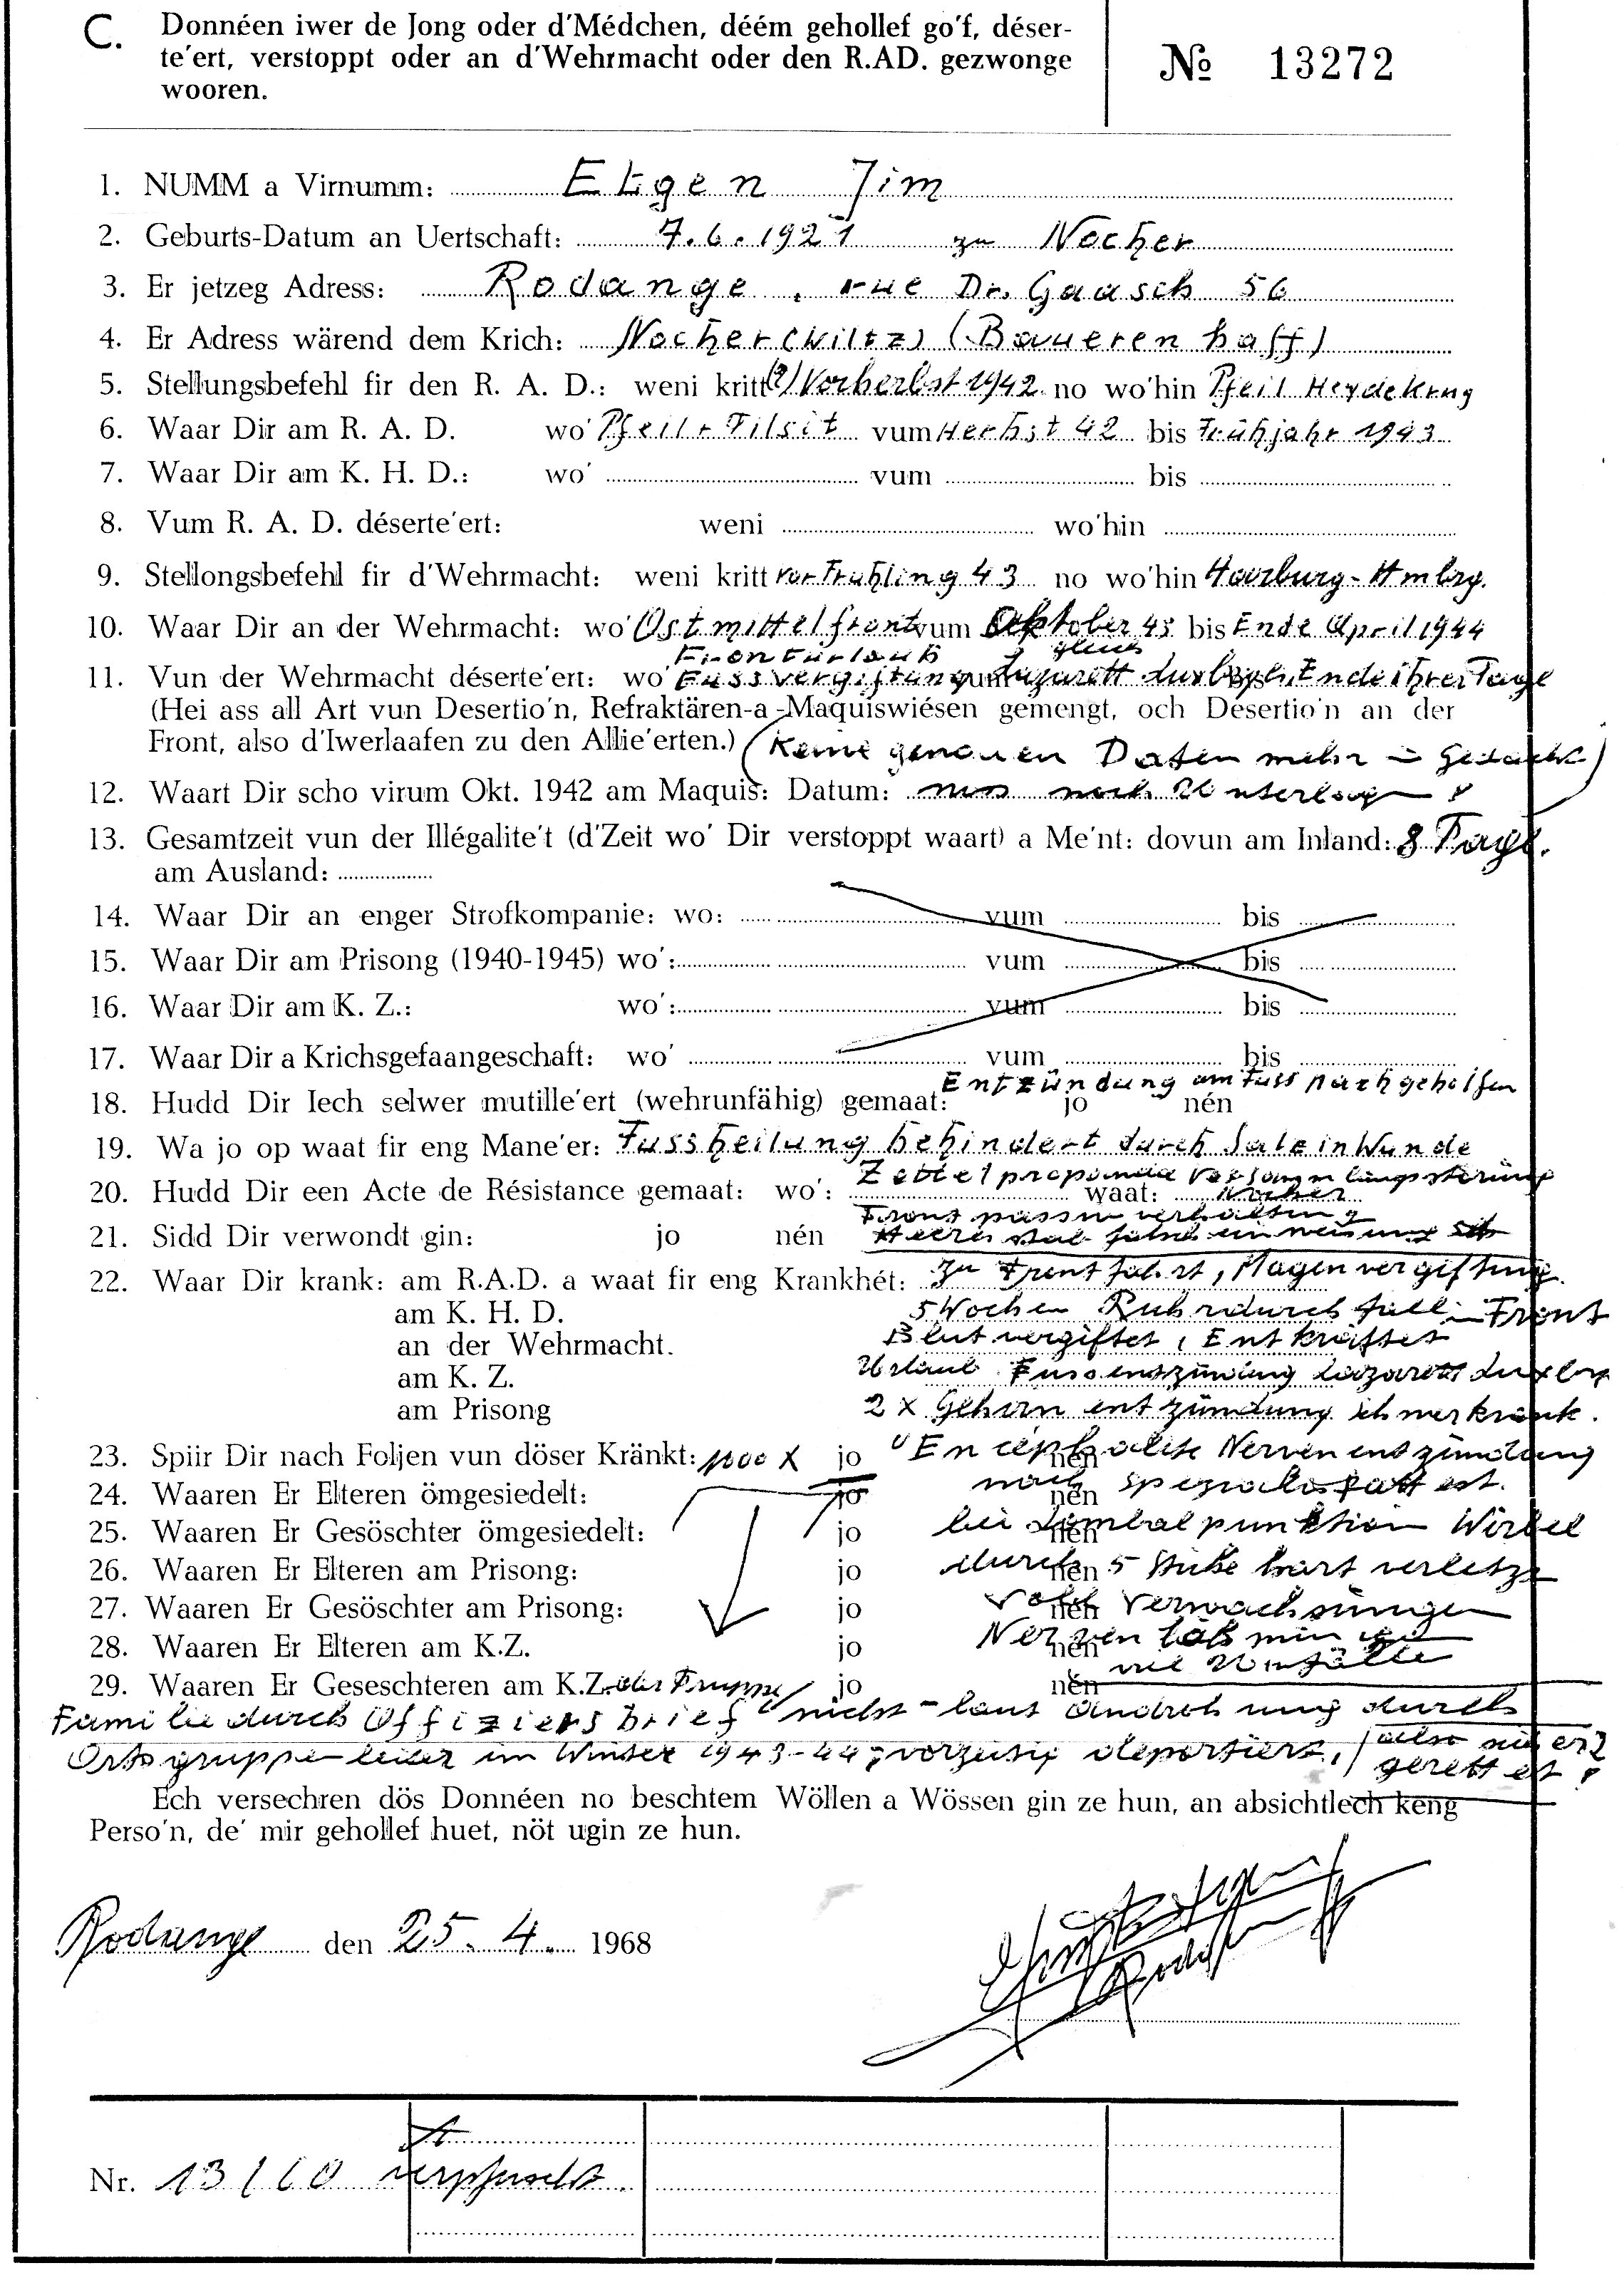 C. Donnéen iwer de Jong oder d'Médchen, déém gehollef go'f, déser-
te'ert, verstoppt oder an d'Wehrmacht oder den R.AD. gezwonge
wooren.
№ 13272
1. NUMM a Virnumm: Etgen Jim
2. Geburts-Datum an Uertschaft: 7.6.1921 zu Nocher
3. Er jetzeg Adress: Rodange, rue Dr. Gaasch 56
4. Er Adress wärend dem Krich: Nocher (Wiltz) (Baueren haff)
5. Stellungsbefehl fir den R. A. D.: weni kritt (?) Vorherbst 1942 no wo'hin Pfeil Heydekrug
6. Waar Dir am R. A. D. wo' Pfeil - Tilsit vum Herbst 42 bis Frühjahr 1943
7. Waar Dir am K. H. D.: wo' vum bis
8. Vum R. A. D. déserte'ert: weni wo'hin
9. Stellongsbefehl fir d'Wehrmacht: weni kritt vor Frühling 43 no wo'hin Harburg - Hmbrg.
10. Waar Dir an der Wehrmacht: wo' Ostmittelfront vum Oktober 43 bis Ende April 1944
Fronturlaub gleich
11. Vun der Wehrmacht déserte'ert: wo' Fussvergiftung vum Lazarett Luxbg bis Ende ihrer Tage
(Hei ass all Art vun Desertio'n, Refraktären-a -Maquiswiésen gemengt, och Desertio'n an der
Front, also d'Iwerlaafen zu den Allie'erten.) (Keine genauen Daten mehr in Gedächt)
12. Waart Dir scho virum Okt. 1942 am Maquis: Datum: nur noch Unterlagen
13. Gesamtzeit vun der Illégalite't (d'Zeit wo' Dir verstoppt waart) a Me'nt: dovun am Inland: 8 Tage.
am Ausland:
14. Waar Dir an enger Strofkompanie: wo: vum bis
15. Waar Dir am Prisong (1940-1945) wo': vum bis
16. Waar Dir am K. Z.: wo': vum bis
17. Waar Dir a Krichsgefaangeschaft: wo' vum bis
Entzündung am Fuss nachgeholfen
18. Hudd Dir Iech selwer mutille'ert (wehrunfähig) gemaat: jo nén
19. Wa jo op waat fir eng Mane'er: Fussheilung behindert durch Salz in Wunde
Zettelpropaganda
20. Hudd Dir een Acte de Résistance gemaat: wo': waat: Nocher
Front passiv verhalten
21. Sidd Dir verwondt gin: jo nén
22. Waar Dir krank: am R.A.D. a waat fir eng Krankhét: zu Frontfahrt, Magenvergiftung
am K. H. D. 5 Wochen Ruhrdurchfall in Front
an der Wehrmacht. Blutvergiftet, Entkräftet
am K. Z. Urlaub Fussentzündung Lazarett Luxbg
am Prisong 2 X Gehirnentzündung schwerkrank.
23. Spiir Dir nach Foljen vun döser Kränkt: 1000 X jo nén Encéphalite Nervenentzündung
24. Waaren Er Elteren ömgesiedelt: jo nén nach Spezialistattest.
25. Waaren Er Gesöschter ömgesiedelt: jo nén bei Lumbalpunktion Wirbel
26. Waaren Er Elteren am Prisong: jo nén durch 5 Stiche hart verletzt
27. Waaren Er Gesöschter am Prisong: jo nén Verwachsungen
28. Waaren Er Elteren am K.Z. jo nén
viel Unfälle
29. Waaren Er Geseschteren am K.Z. der Truppe jo nén
Familie durch Offiziersbrief nicht - laut Androhung durch
Ortsgruppenleiter im Winter 1943-44, vorzeitig deportiert,
gerettet!
Ech versechren dös Donnéen no beschtem Wöllen a Wössen gin ze hun, an absichtlech keng
Perso'n, de' mir gehollef huet, nöt ugin ze hun.
Rodange den 25. 4. 1968
Nr. 13160 verpfuscht.